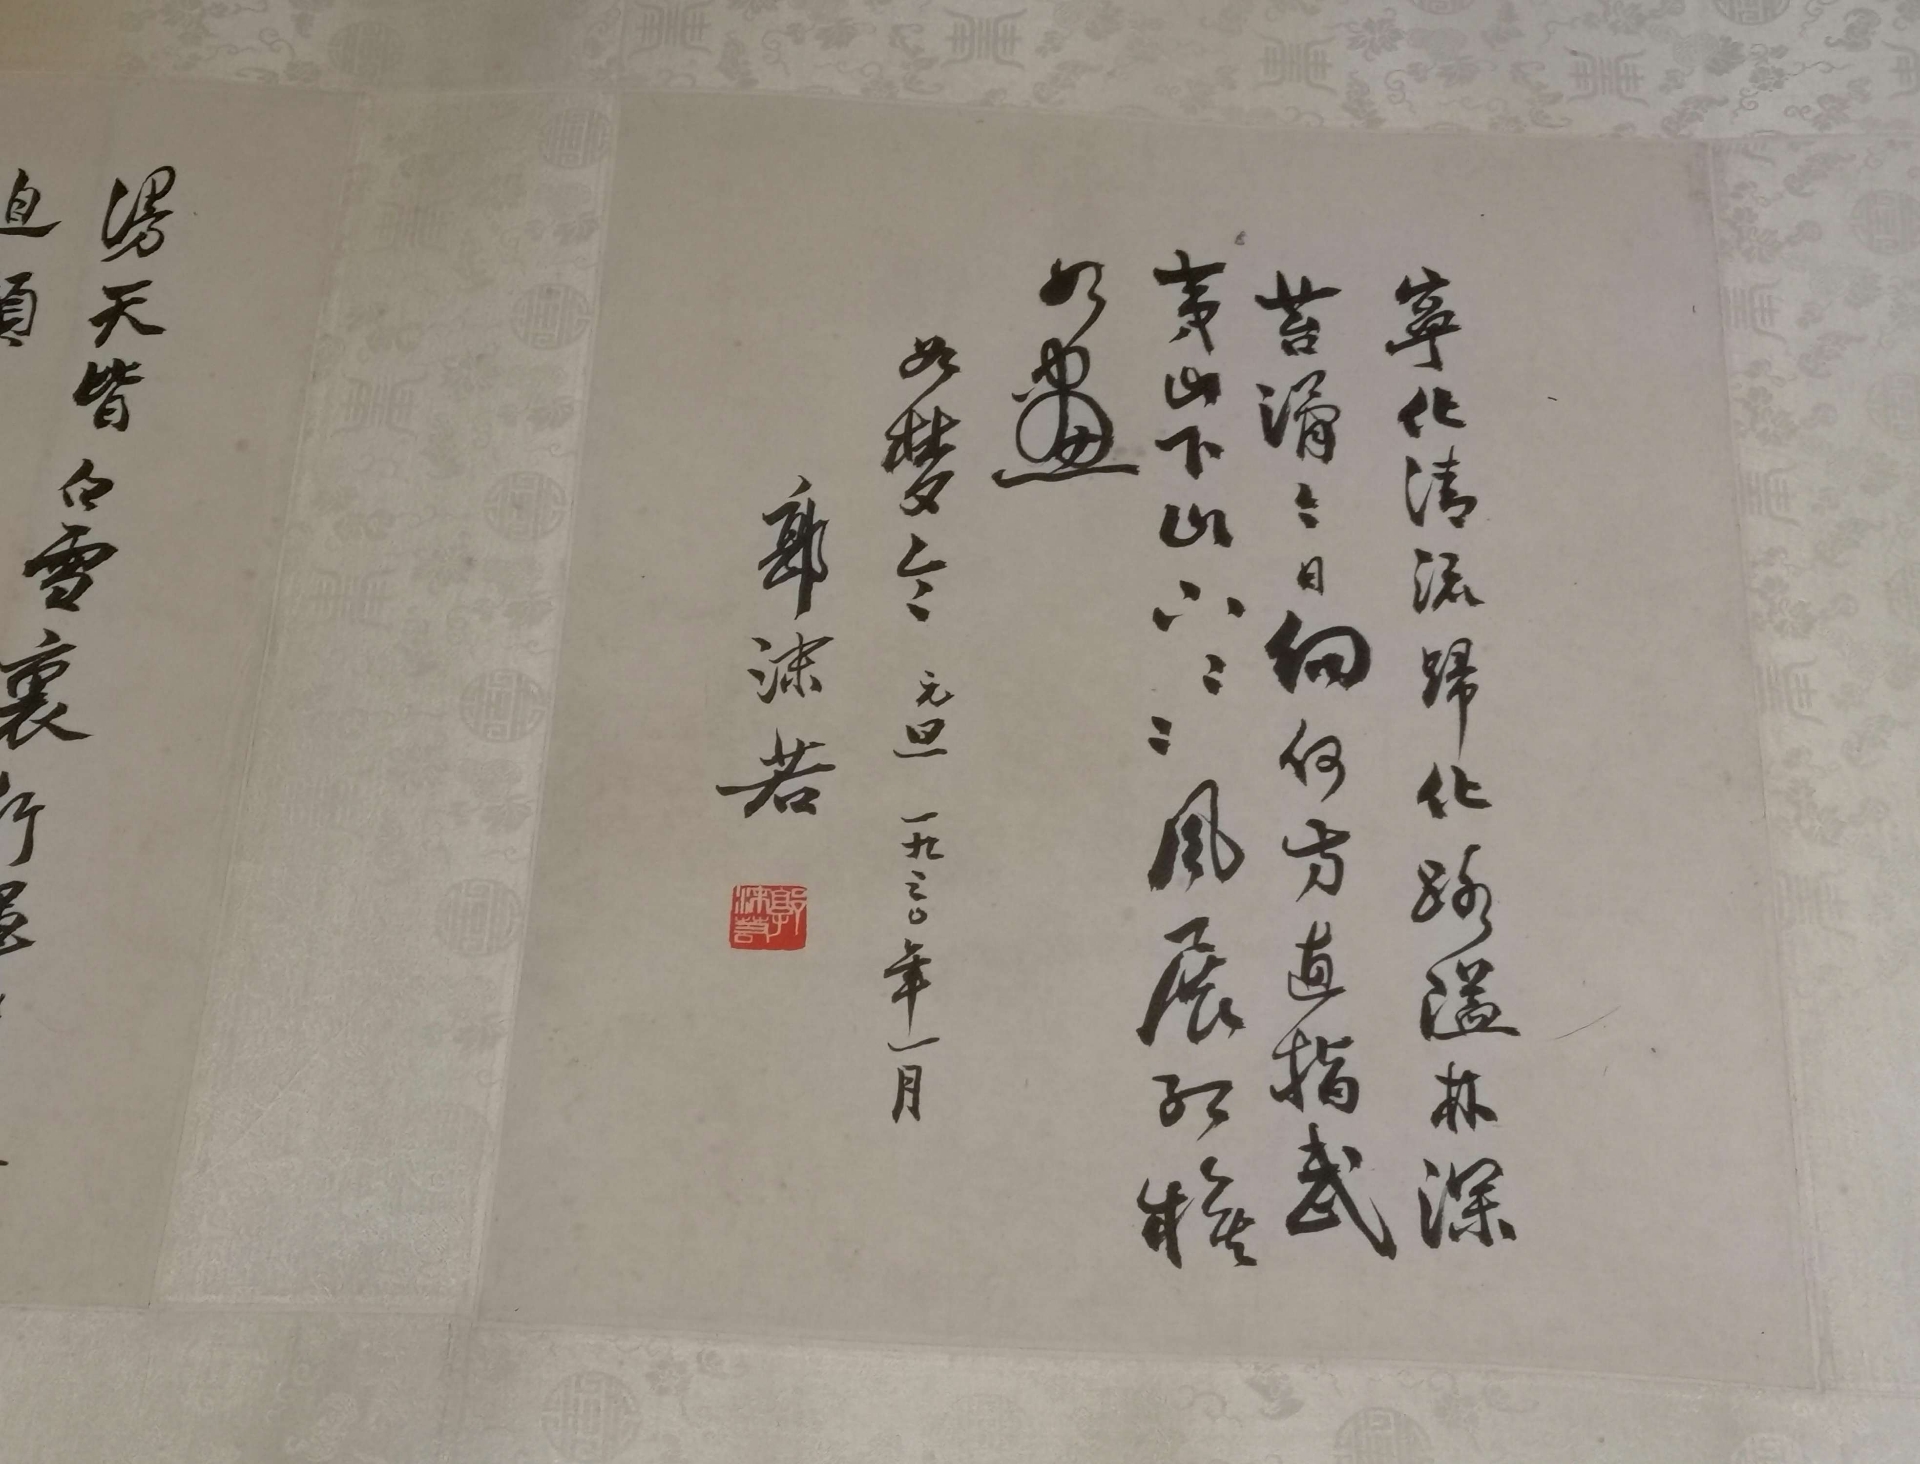 寧化清流歸化路隘林深
苔滑今日向何方直指武
夷山下山下〻〻風展紅旗
如畫
如夢令 元旦 一九三〇年一月
郭沫若
郭沫若
漫天皆白雪裏行
迫頭